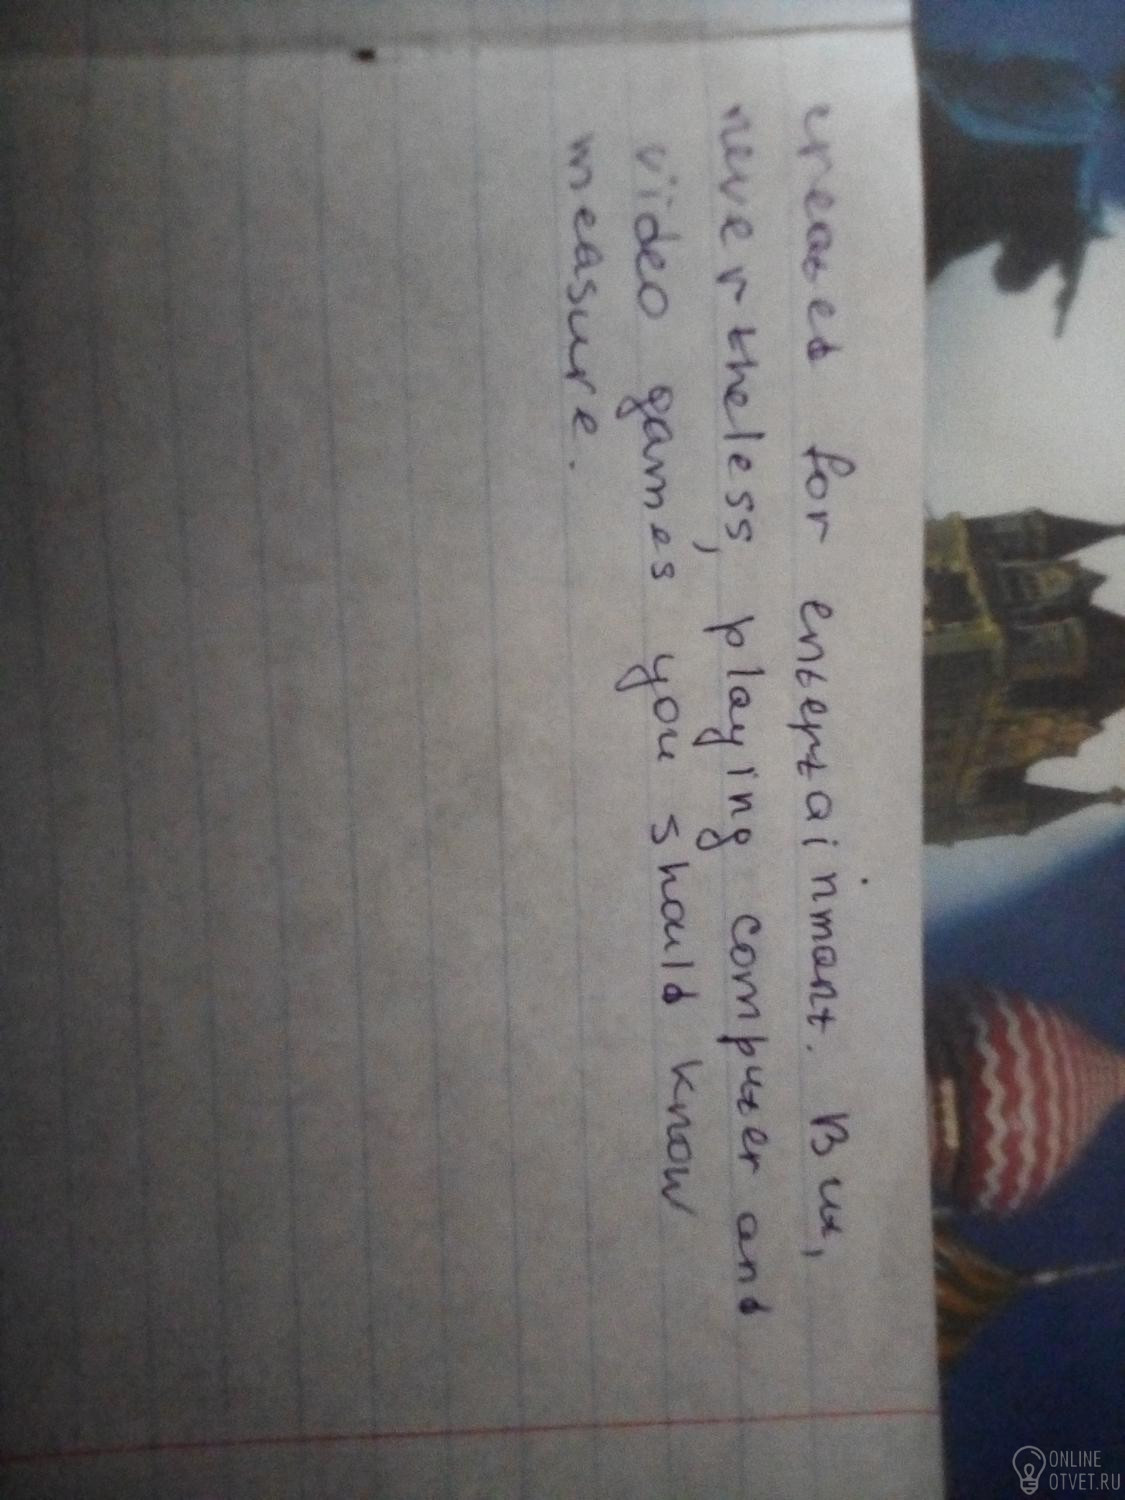 created for entertainmant. But,
nevertheless, playing computer and
video games you should know
measure.
ONLINE
OTVET.RU